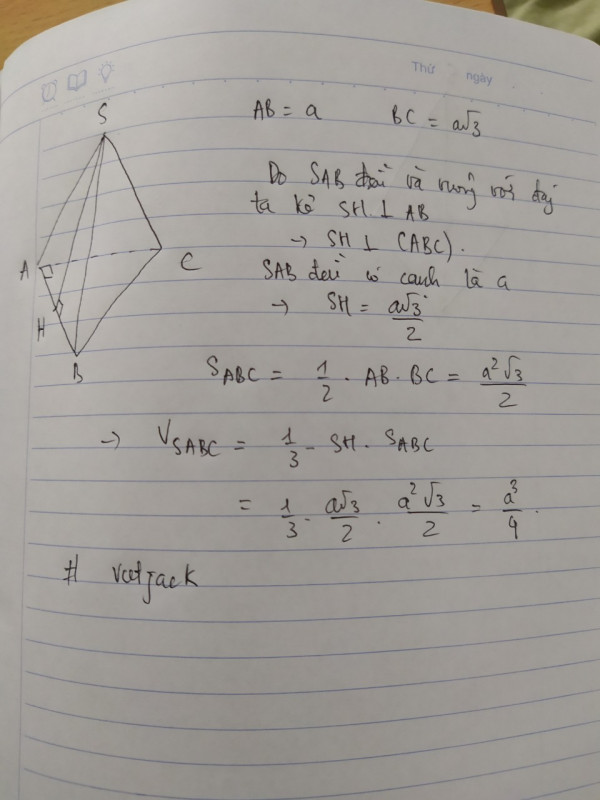 Thứ ngày
S
A
C
H
B
AB = a BC = a√3
Do SAB đều và vuông với đáy
ta kẻ SH ⊥ AB
→ SH ⊥ (ABC).
SAB đều có cạnh là a
→ SH = a√3/2
S_ABC = 1/2 . AB . BC = a²√3/2
→ V_SABC = 1/3 . SH . S_ABC
= 1/3 . a√3/2 . a²√3/2 = a³/4.
# vietjack